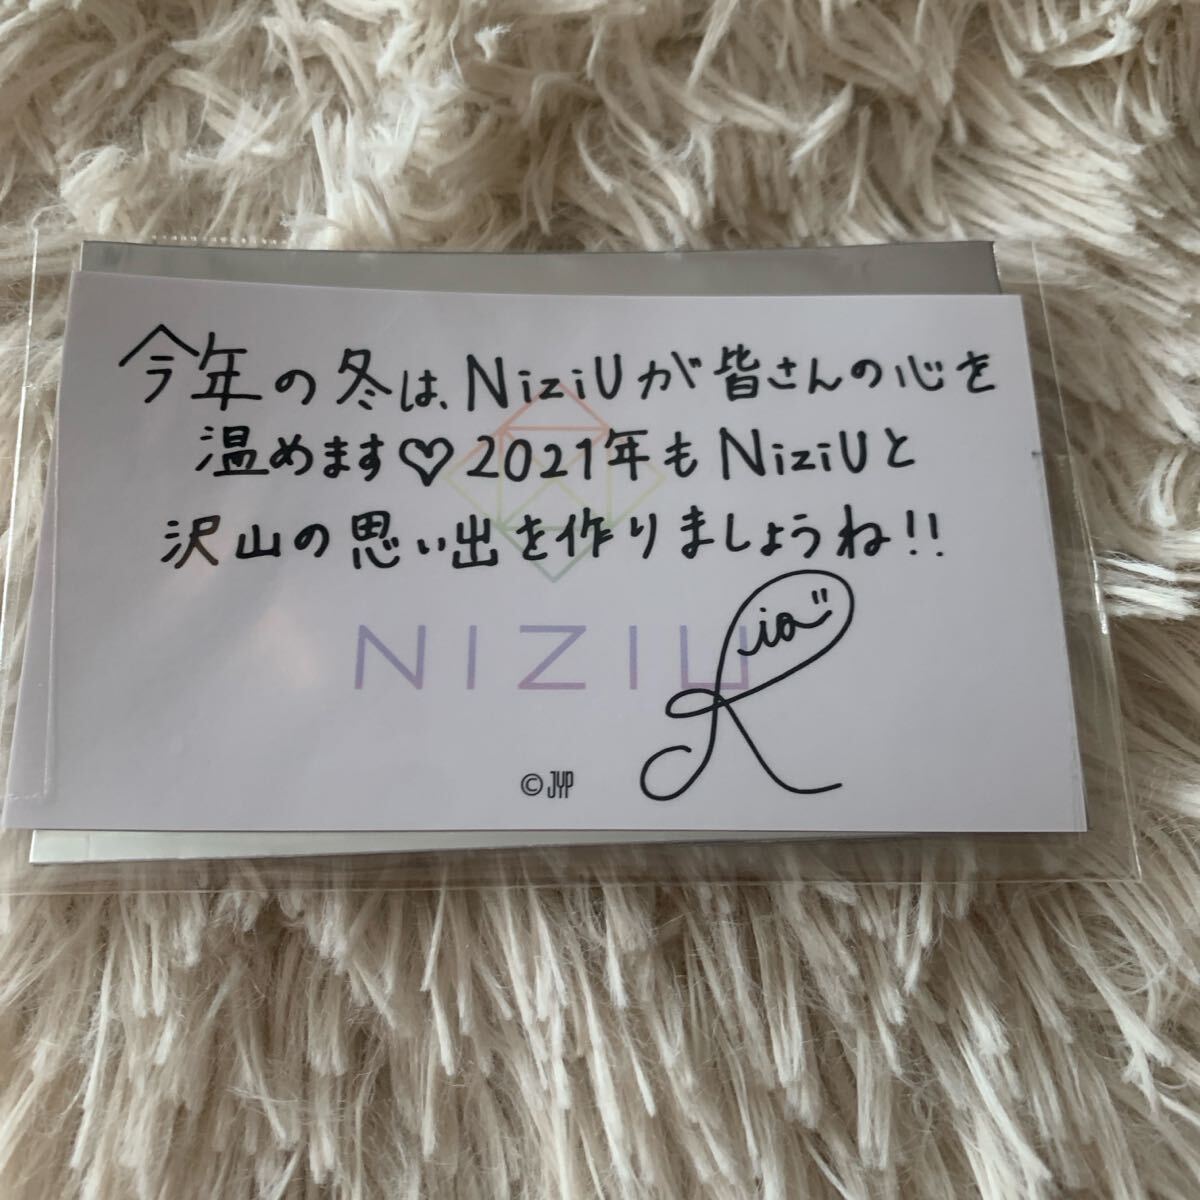 今年の冬は、NiziUが皆さんの心を
温めます♡2021年もNiziUと
沢山の思い出を作りましょうね!!
Ria"
NIZIU
©JYP